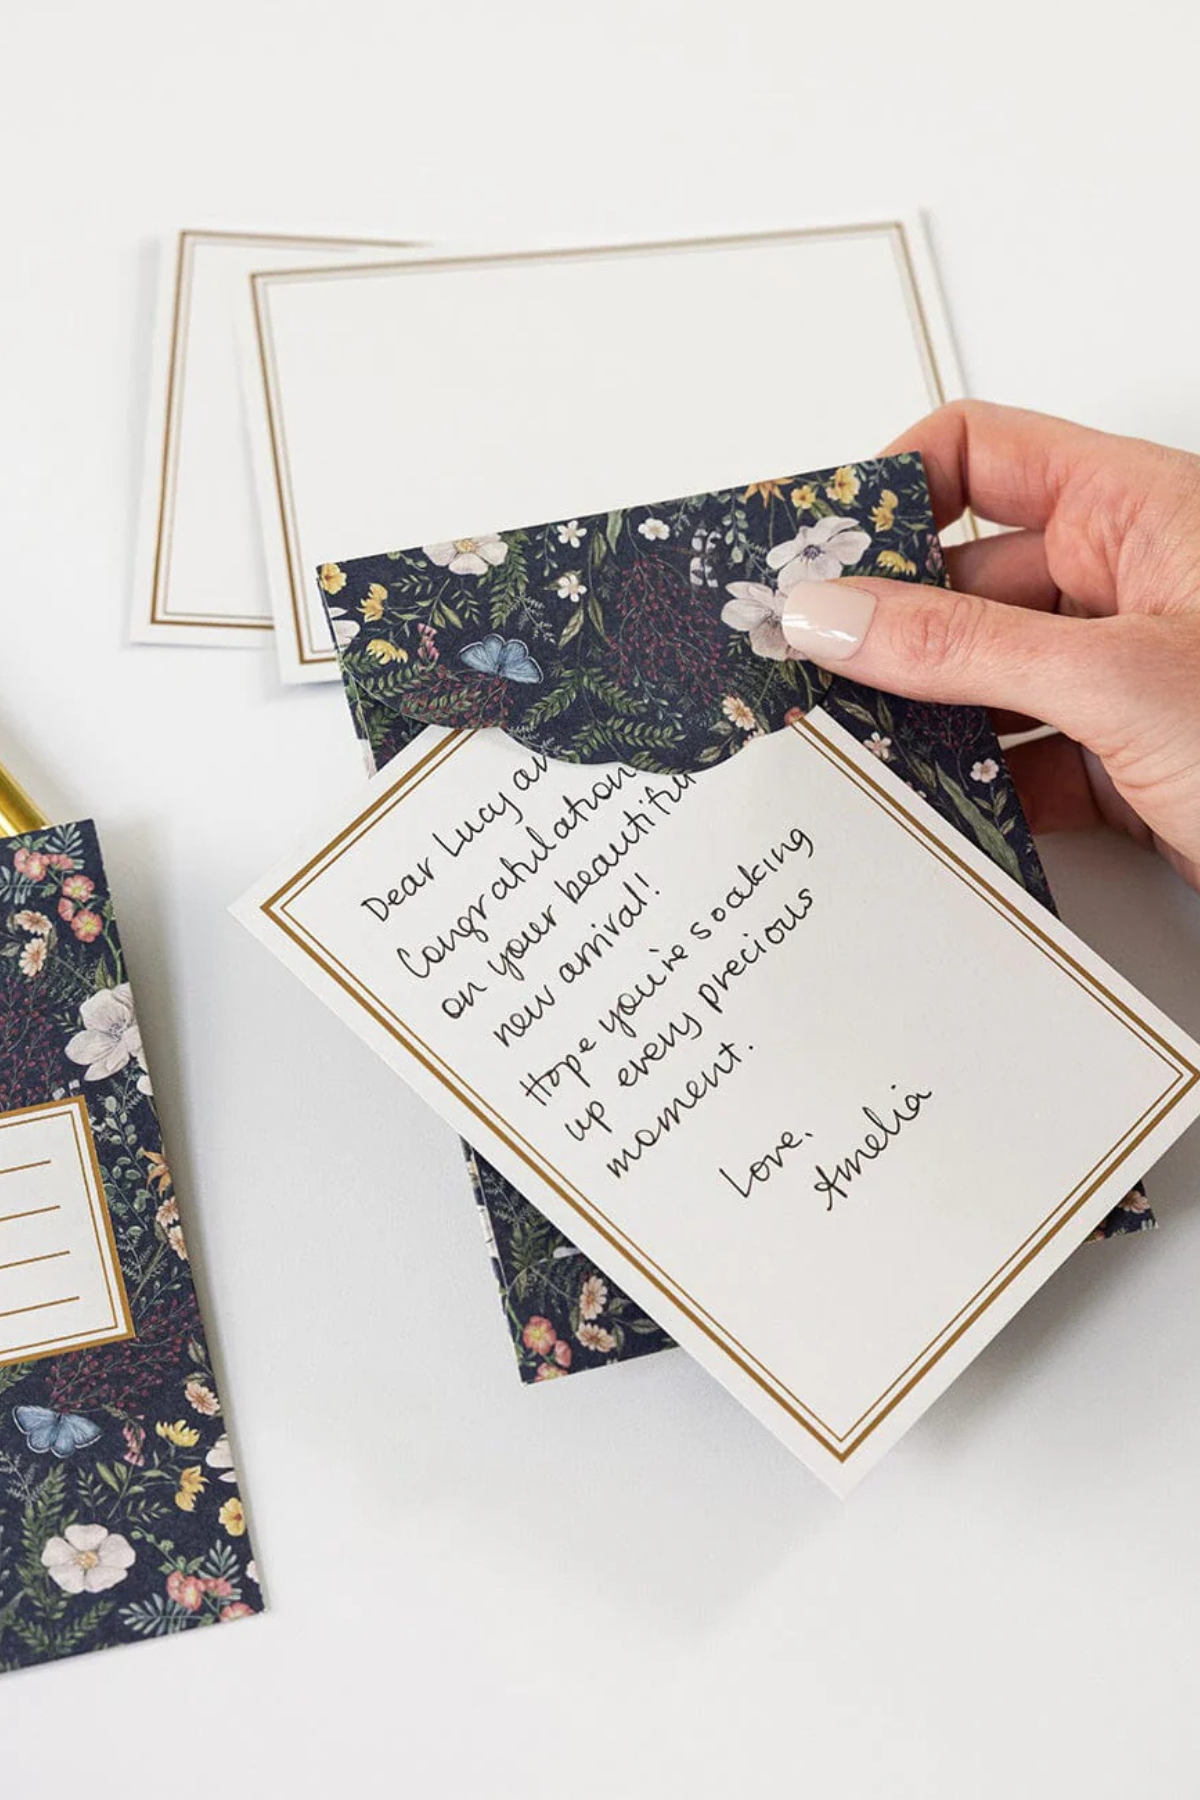 Dear Lucy an
Congratulation
on your beautifu
new arrival!
Hope you're soaking
up every precious
moment.
Love,
Amelia